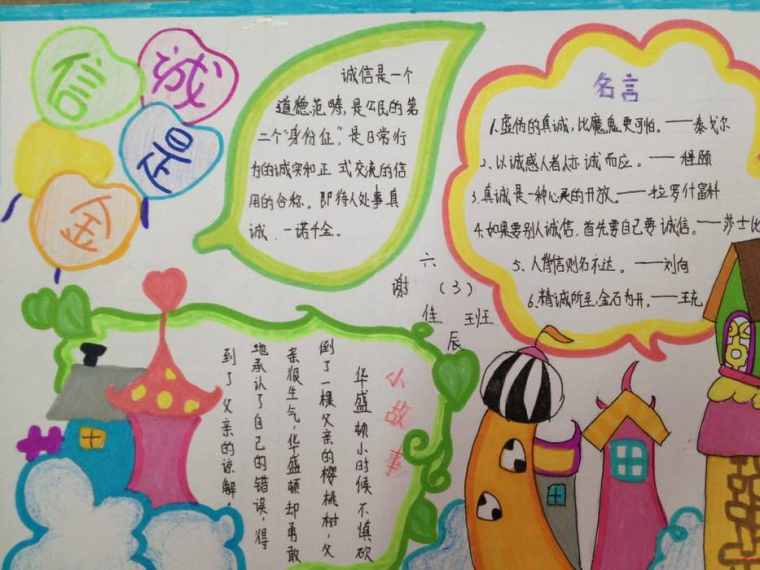 诚信是金
诚信是一个
道德范畴,是公民的第
二个“身份证”,是日常行
为的诚实和正式交流的信
用的合称。即待人处事真
诚、一诺千金。
名言
1.虚伪的真诚,比魔鬼更可怕。——泰戈尔
2.以诚感人者人亦诚而应。——程颐
3.真诚是一种心灵的开放。——拉罗什富科
4.如果要别人诚信,首先要自己要诚信。——莎士比
5.人背信则名不达。——刘向
6.精诚所至,金石为开。——王充
六(3)班
谢佳辰
小故事
华盛顿小时候不慎砍
倒了一棵父亲的樱桃树,父
亲狠生气,华盛顿却勇敢
地承认了自己的错误,得
到了父亲的谅解。